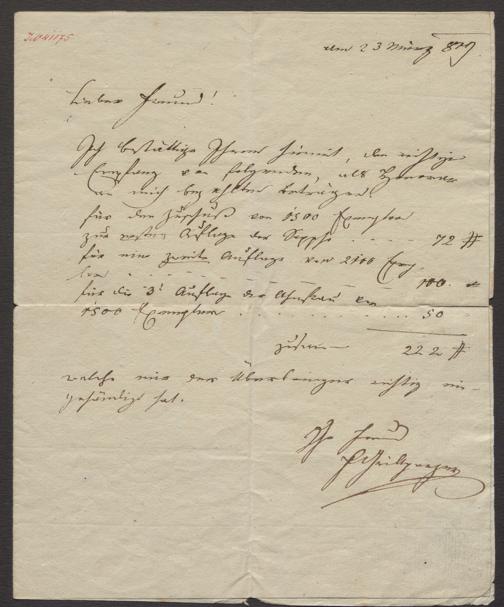 am 23 März 819
Lieber Freund!
Ich bestättige Ihnen hiermit, den richtige
Empfang von folgenden, als Honorar
an mich bezahlten Beträgen.
für den Zuschuß von 1500 Exemplar
zur ersten Auflage der Sappho - - - - 72 #
für eine zweite Auflage von 2100 Exem
lar - - - - - 100. #
für die 3t Auflage der Ahnfrau von
1500 Exemplar . . . . . . . . 50
zusammen 222 #
welche mir der Überbringer richtig ein-
gehändigt hat.
Ihr Freund
Grillparzer